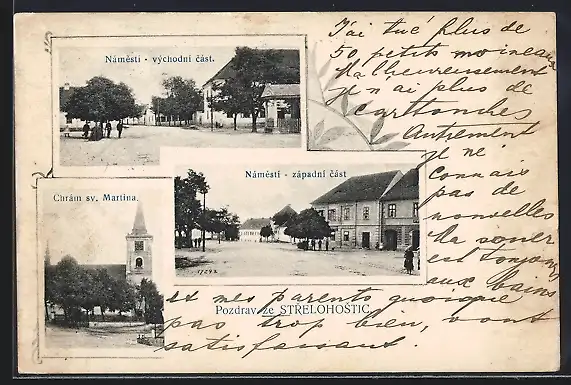 Náměstí - východní část.
Náměstí - západní část
Chrám sv. Martina.
17242
Pozdrav ze STŘELOHOŠTIC.
J'ai tué plus de
50 petits moineaux
Malheureusement
je n'ai plus de
cartouches
Autrement
je ne
connais
pas de
nouvelles
Ma soeur
est toujours
aux bains
et mes parents quoique
pas trop bien, vont
satisfassant.